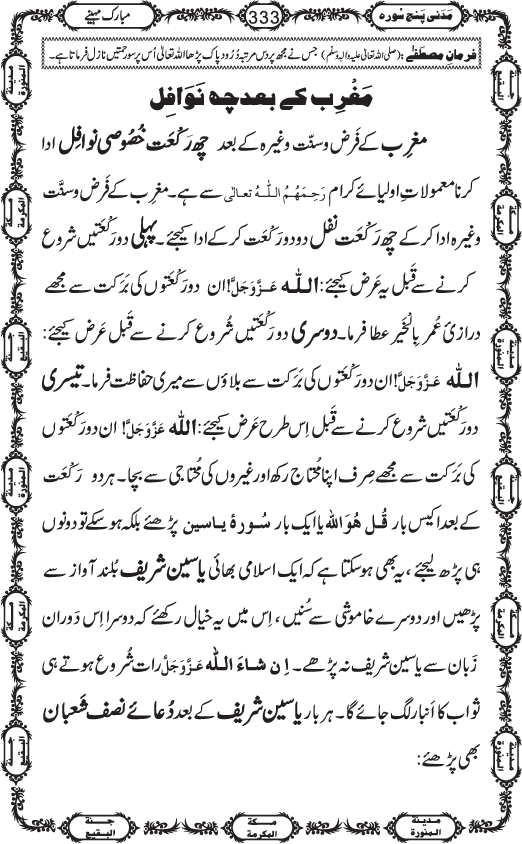 مَدَنی پنج سورہ
333
مبارک مہینے
فرمانِ مصطفٰے :(صلی اللہ تعالیٰ علیہ والہٖ وسلّم) جس نے مجھ پر دس مرتبہ دُرُود پاک پڑھا اللہ تعالیٰ اُس پر سو رحمتیں نازل فرماتا ہے۔
مَغْرِب کے بعد چھ نَوافِل
مغرِب کے فَرض و سنّت وغیرہ کے بعد چھ رَکْعَت خُصُوصی نوافِل ادا
کرنا معمولاتِ اولیائے کرام رَحِمَهُمُ اللّٰهُ تعالٰی سے ہے۔ مغرِب کے فَرض و سنَّت
وغیرہ ادا کر کے چھ رَکْعَت نَفْل دو دو رَکعت کر کے ادا کیجئے۔ پہلی دو رَکْعَتیں شروع
کرنے سے قَبل یہ عَرض کیجئے: اللّٰه عَزَّوَجَلَّ! ان دو رَکْعَتوں کی بَرَکت سے مجھے
درازیٔ عُمر بِالْخَیر عطا فرما۔ دوسری دو رَکْعَتیں شُروع کرنے سے قَبل عَرض کیجئے:
اللّٰه عَزَّوَجَلَّ! ان دو رَکْعَتوں کی بَرَکت سے بلاؤں سے میری حفاظت فرما۔ تیسری
دو رَکْعَتیں شروع کرنے سے قَبل اِس طرح عَرض کیجئے: اللّٰه عَزَّوَجَلَّ! ان دو رَکْعَتوں
کی بَرَکت سے مجھے صِرف اپنا مُحتاج رکھ اور غیروں کی مُحتاجی سے بچا۔ ہر دو رَکْعَت
کے بعد اکیس بار قُل هُوَ اللّٰه یا ایک بار سُورۂ یاسین پڑھئے بلکہ ہو سکے تو دونوں
ہی پڑھ لیجئے، یہ بھی ہو سکتا ہے کہ ایک اسلامی بھائی یاسین شریف بُلند آواز سے
پڑھیں اور دوسرے خاموشی سے سُنیں، اِس میں یہ خیال رکھئے کہ دوسرا اِس دَوران
زَبان سے یاسین شریف نہ پڑھے۔ اِن شاءَ اللّٰه عَزَّوَجَلَّ رات شُروع ہوتے ہی
ثواب کا اَنبار لگ جائے گا۔ ہر بار یاسین شریف کے بعد دُعائے نصف شَعبان
بھی پڑھئے:
مدینۃ المنورۃ
جنۃ البقیع
مکۃ المکرمۃ
مکۃ المکرمۃ
جنۃ البقیع
مدینۃ المنورۃ
مدینۃ المنورۃ
جنۃ البقیع
مکۃ المکرمۃ
مکۃ المکرمۃ
جنۃ البقیع
مدینۃ المنورۃ
مدینۃ المنورۃ
مکۃ المکرمۃ
جنۃ البقیع